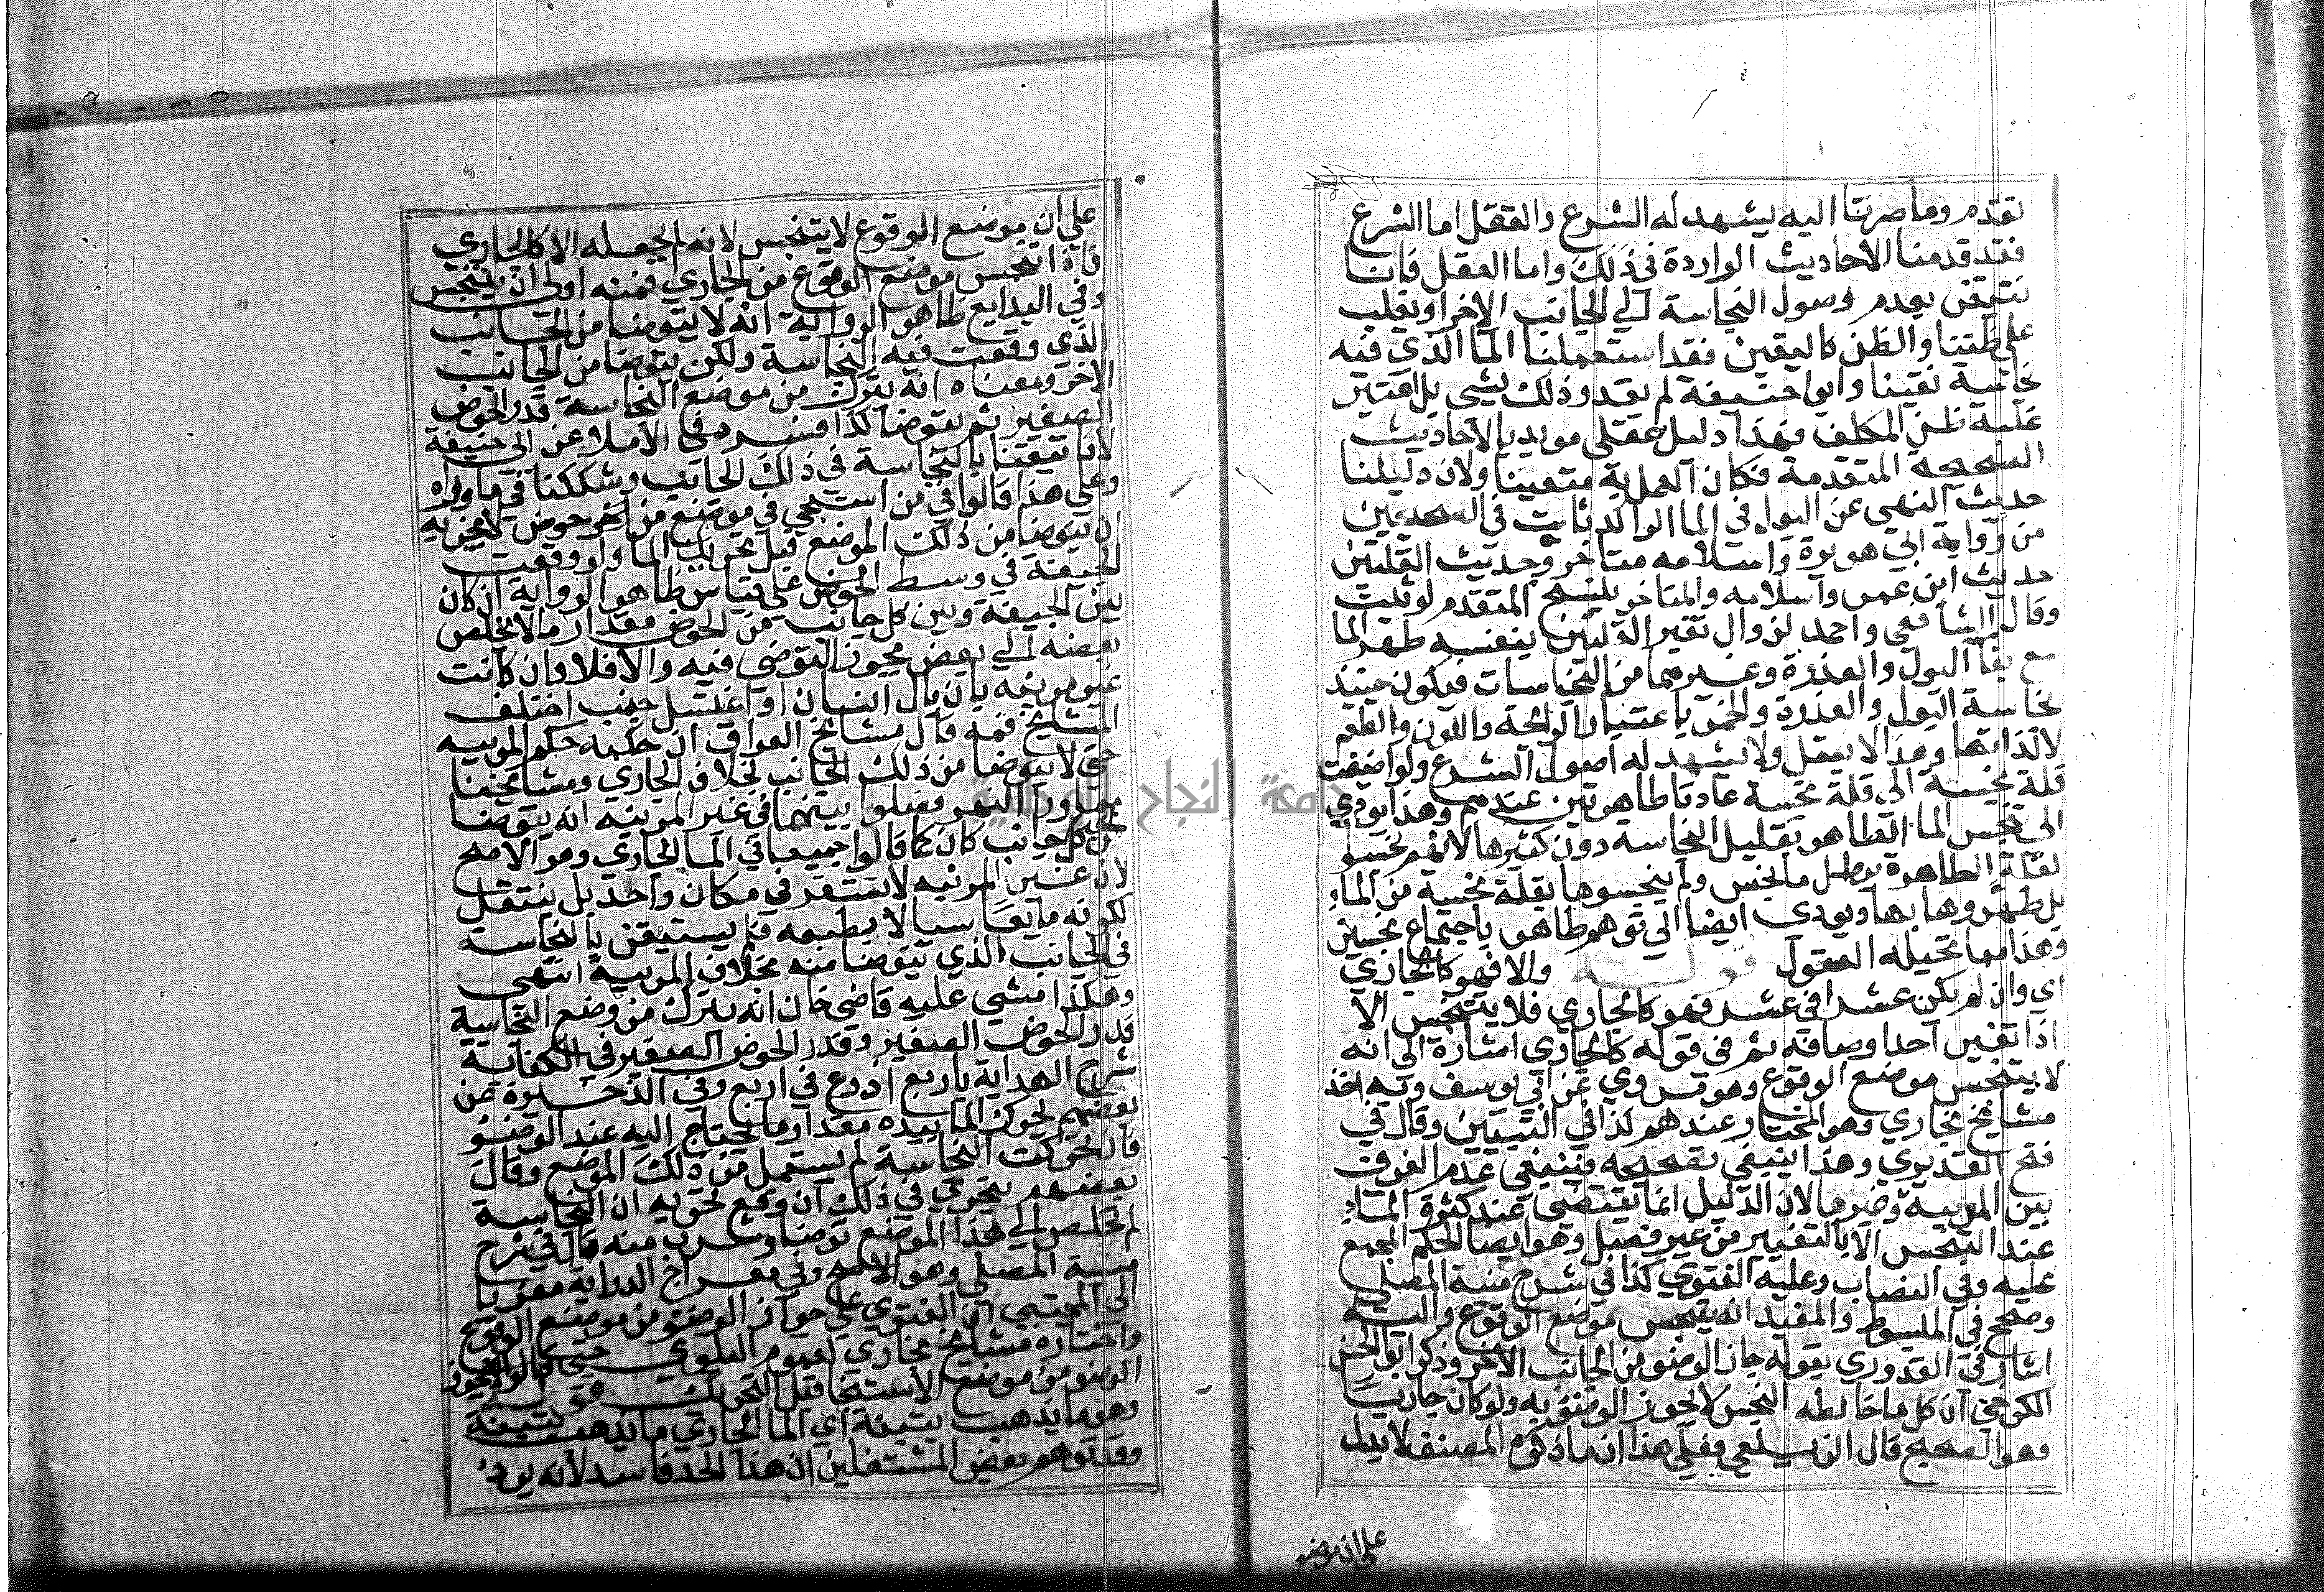 تقدم وما صرنا اليه يشهد له الشرع والعقل اما الشرع
فقد قدمنا الاحاديث الواردة في ذلك واما العقل فانا
نتيقن بعدم وصول النجاسة الي الجانب الاخر او يغلب
على ظننا والظن كاليقين فقد استعملنا الما الذي فيه
نجاسة يقينا وابو حنيفة لم يقدر ذلك بشي بل اعتبر
غلبة ظن المكلف فهذا دليل عقلي مويد بالاحاديث
الصحيحه المتقدمة فكان العمل به متعينا ولان دليلنا
حديث النهي عن البول في الما الراكد ثابت في الصحيحين
من رواية ابي هريرة واسلامه متاخر وحديث القلتين
حديث ابن عمر واسلامه والمتاخر ينسخ المتقدم لو ثبت
وقال الشافعي واحمد لو زال تغير القلتين بنفسه طهر الما
مع بقا البول والعذرة وغيرهما من النجاسات فيكون حينئذ
نجاسة البول والعذرة والخمر باعتبار الرائحة واللون والطعم
لا لذاتها وهذا لا يعقل ولا يشهد له اصول الشرع ولو اضيفت
قلة نجسة الي قلة نجسة عادتا طاهرتين عندهم وهذا يودي
الى تنجس الما الطاهر بقليل النجاسه دون كثيرها لانهم نجسوا
القلة الطاهرة برطل ما نجس ولم ينجسوها بقلة نجسة من الماء
بل طهروها بها ويودي ايضا الي توهم طاهر باجتماع نجسين
وهذا مما تحيله العقول والا فهو كالجاري
اي وان لم يكن عشرا في عشر فهو كالجاري فلا يتنجس الا
اذا تغير احد اوصافه ثم في قوله كالجاري اشارة الى انه
لا يتنجس موضع الوقوع وهو مروي عن ابي يوسف وبه اخذ
مشايخ بخاري وهو المختار عندهم كذا في التبيين وقال في
فتح القدير وهذا ينبغي تصحيحه فينبغي عدم الفرق
بين المرييه وغيرها لان الدليل انما يقتضي عند كثرة الماء
عند التنجس الا بالتغيير من غير فصل وهو ايضا الحكم المجمع
عليه وفي النصاب وعليه الفتوي كذا في شرح منية المصلي
وصحح في المبسوط والمفيد انه يتنجس موضع الوقوع واليه
اشار في القدوري بقوله جاز الوضو من الجانب الاخر وذكر ابو الحسن
الكرخي ان كل ما خالطه النجس لا يجوز الوضو به ولو كان جاريا
وهو الصحيح قال الزيلعي فعلي هذا ان ما ذكره المصنف لا يدل
علي ان موضع
علي ان موضع الوقوع لا يتنجس لانه لم يجعله الا كالجاري
فاذا تنجس موضع الوقوع من الجاري فمنه اولى ان يتنجس
وفي البدايع ظاهر الرواية انه لا يتوضا من الجانب
الذي وقعت فيه النجاسة ولكن يتوضا من الجانب
الاخر ومعناه انه يترك من موضع النجاسة قدر الحوض
الصغير ثم يتوضا كذا فسره في الاملا عن ابي حنيفة
لانا تيقنا بالنجاسة في ذلك الجانب وشككنا في ما وراه
وعلي هذا قالوا في من استنجي في موضع من حوض لا يجزيه
ان يتوضا من ذلك الموضع قبل تحريك الما ولو وقعت
الجيفة في وسط الحوض علي قياس ظاهر الرواية ان كان
بين الجيفة وبين كل جانب من الحوض مقدار ما لا يخلص
بعضه الي بعض يجوز التوضي فيه والا فلا وان كانت
غير مرييه بان بال انسان او اغتسل جنب اختلف
المشايخ فيه قال مشايخ العراق ان حكمه حكم المرييه
حتي لا يتوضا من ذلك الجانب بخلاف الجاري ومشايخنا
النهر فصلوا بينهما في غير المرييه انه يتوضا
من كل جانب كان كما قالوا جميعا في الما الجاري وهو الاصح
لان غير المرييه لا يستقر في مكان واحد بل ينتقل
لكونه مايعا سيالا بطبعه فلم يستيقن بالنجاسة
في الجانب الذي يتوضا منه بخلاف المرييه انتهى
وهكذا مشي عليه قاضي خان انه يترك من موضع النجاسة
قدر الحوض الصغير وقدر الحوض الصغير في الكفاية
شرح الهداية باربع اذرع في اربع وفي الذخيرة عن
بعضهم يحرك الما بيده مقدار ما يحتاج اليه عند الوضو
فان تحركت النجاسة لم يستعمل من ذلك الموضع وقال
بعضهم يتحري في ذلك ان وقع تحريه ان النجاسة
لم تخلص الي هذا الموضع توضا وشرب منه قال في شرح
منية المصلي وهو الاصح وفي معراج الدراية معزيا
الي المجتبي ان الفتوي علي جواز الوضو من موضع الوقوع
واختاره مشايخ بخاري لعموم البلوي حتي قالوا يجوز
الوضو من موضع الاستنجا قبل التحريك
وهو ما يذهب بتبنة اي الما الجاري ما يذهب بتبنة
وقد توهم بعض المشتغلين ان هذا الحد فاسد لانه يرد
جامعة النجاح الوطنية